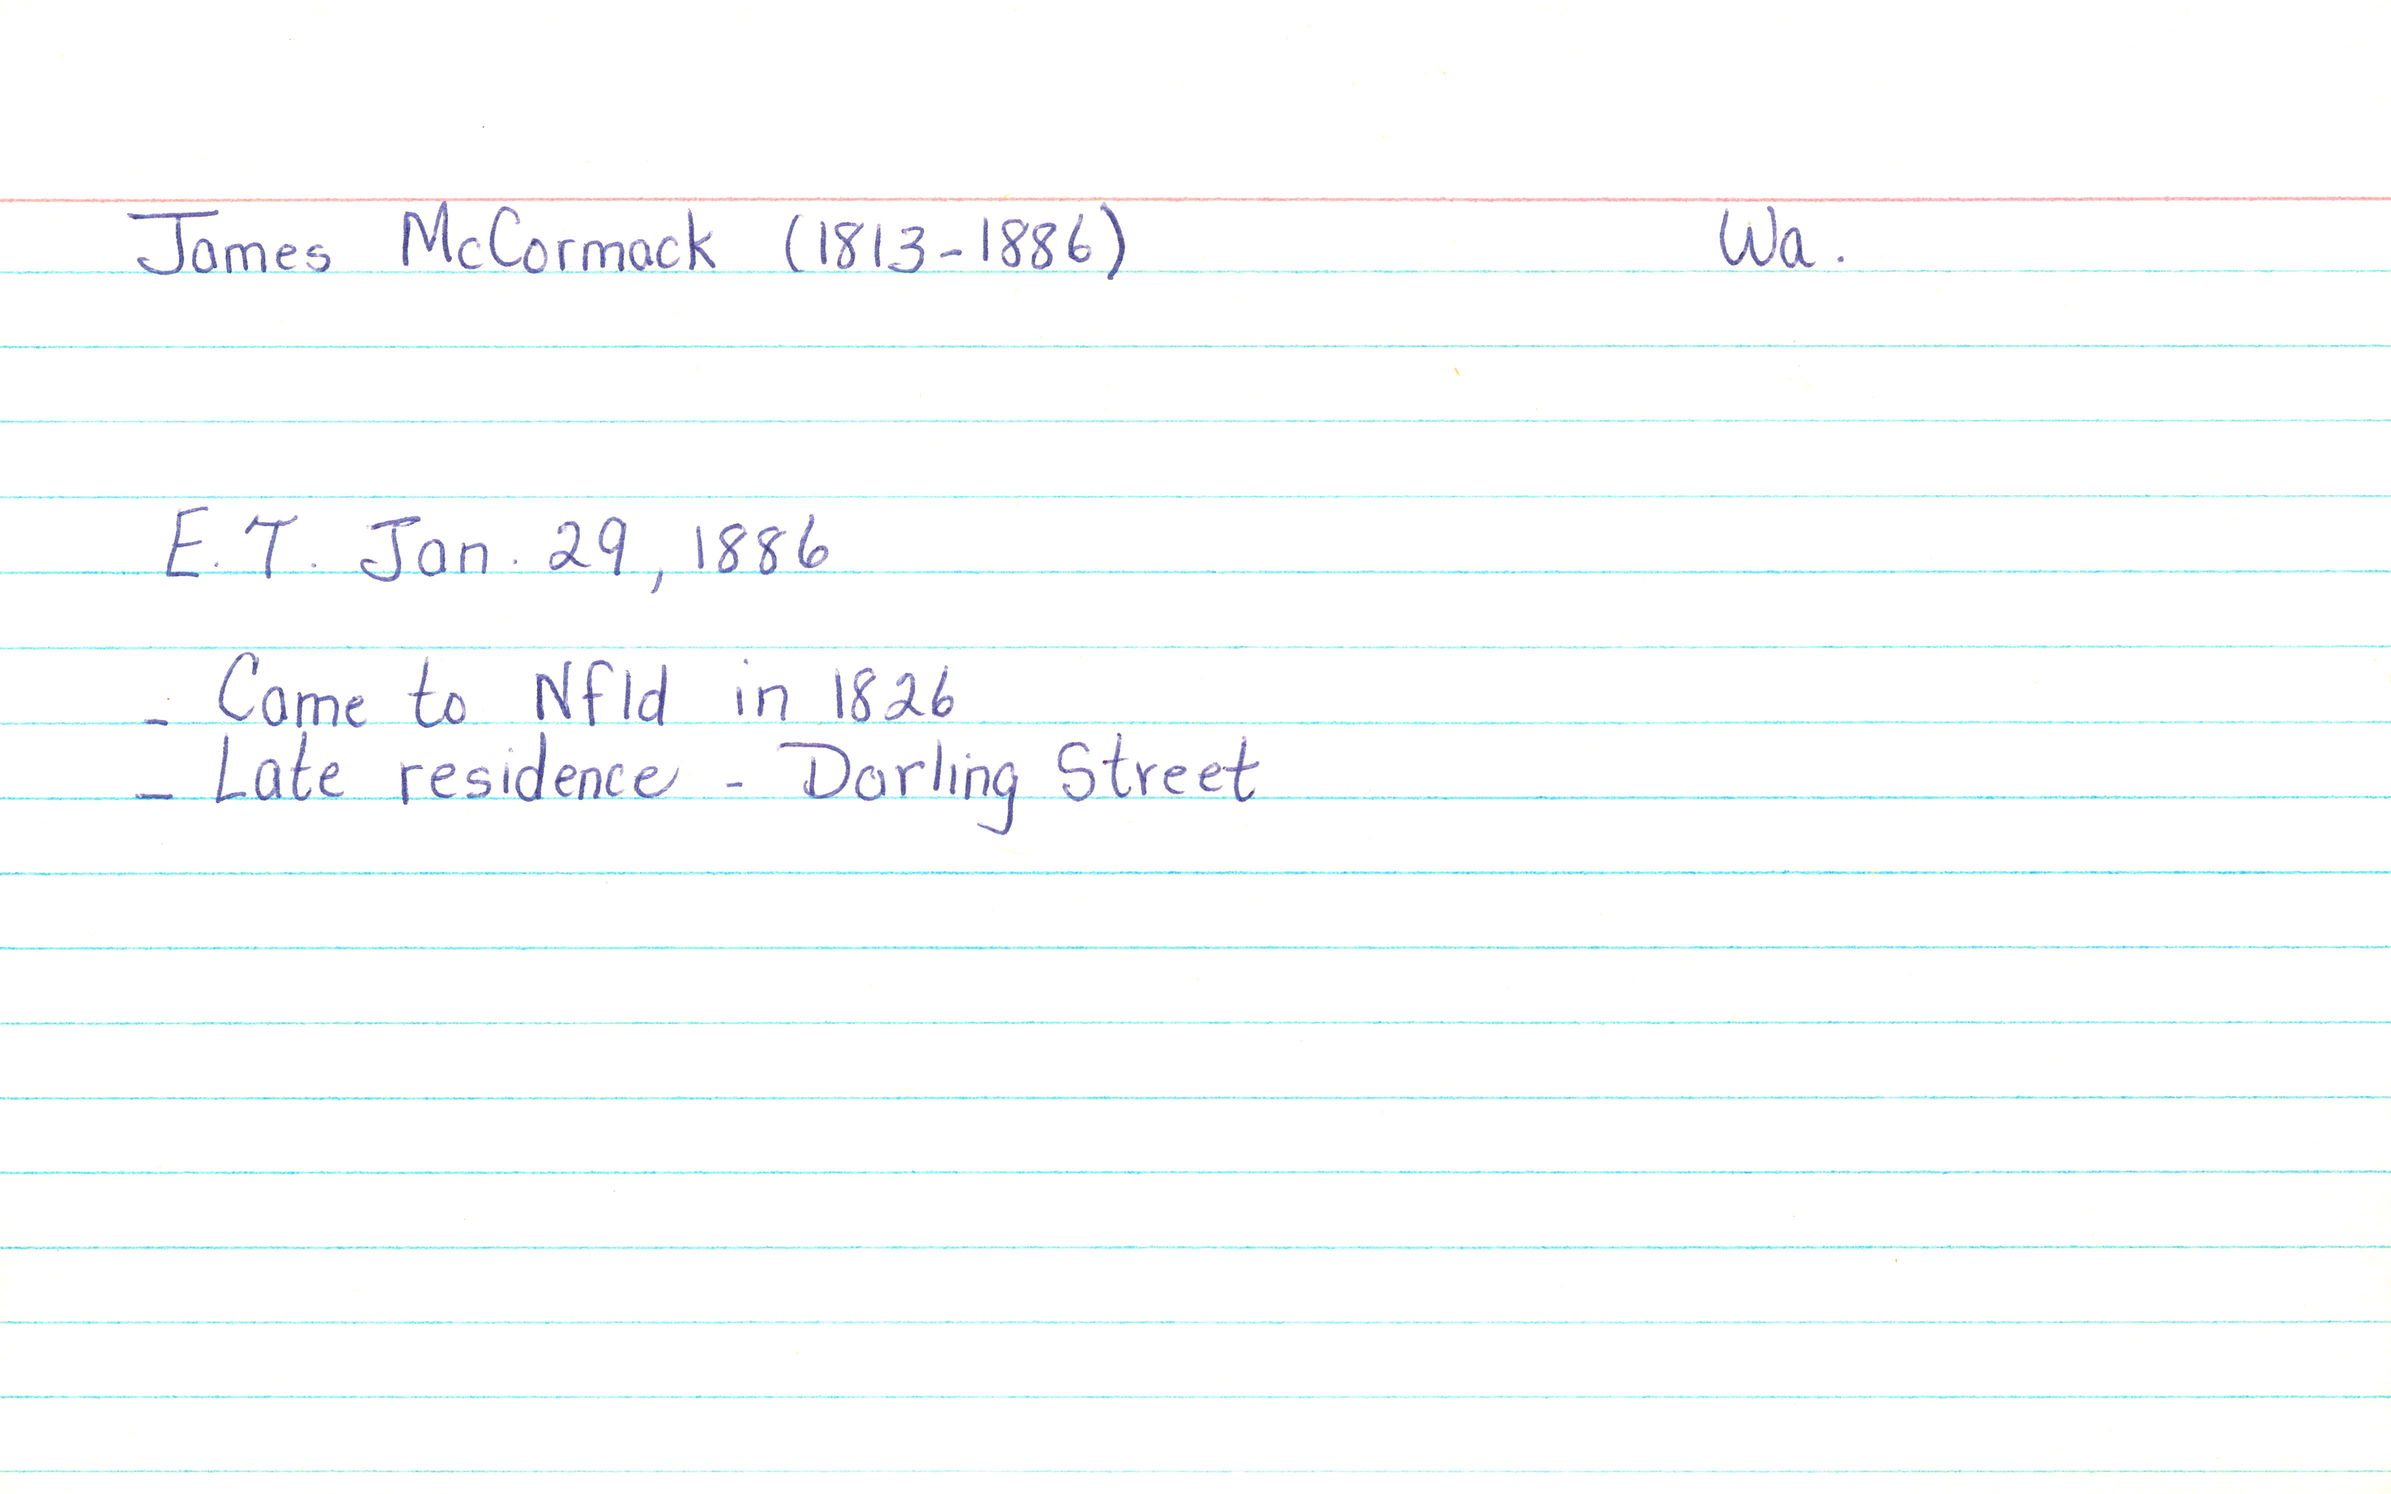 James McCormack (1813-1886) Wa.
E. T. Jan. 29, 1886
- Came to Nfld in 1826
- Late residence - Darling Street